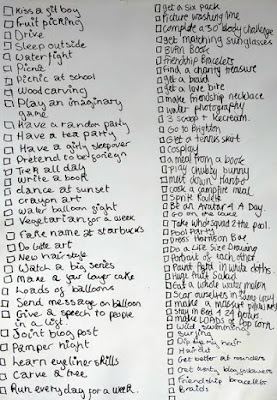 Kiss a girl boy
Fruit picking
Drive
Sleep outside
Water fight
Picnic
Picnic at school
Wood carving
Play an imaginary
game
Have a random party
Have a tea party
Have a girly sleepover
Pretend to be foreign
Trek all day
Write a book
dance at sunset
crayon art
water balloon fight
Vegetarian for a week
Fake name at starbucks
Do some art
New hair style
Watch a big series
Make a layer cake
Loads of balloons
Send message on balloon
Give a speech to people
in a list
Joint blog post
Pamper night
Learn eyeliner skills
Carve a tree
Run every day for a week.
get a six pack
Picture washing line
Complete a 30 day challenge
get matching sunglasses
Burn Book
Friendship Bracelets
Find a charity treasure
get a braid
get a love bite
make friendship necklace
water photography
3 scoop icecream.
Go to Brighton
Get a tennis skirt
Cosplay
a meal from a book
Play chubby bunny
melt down
cook a campfire meal
Sprite
Be an Avatar 4 A Day
Go on the lake
Take 2 the pool
Pool Party
Dress Harrison Bar
Do a Life Size Drawing
Portrait of each other
Paint fight in white cloths.
Huge maths
Eat a whole water melon
Star ourselves in
make a massive pillow
Stay in Bed 4 24 hours
make loads of pop corn
Wild swimming
Surfing
Dip dye my hair
Hair cut
Get better at rounders
Get sixty blog followers
Friendship bracelets
Braids